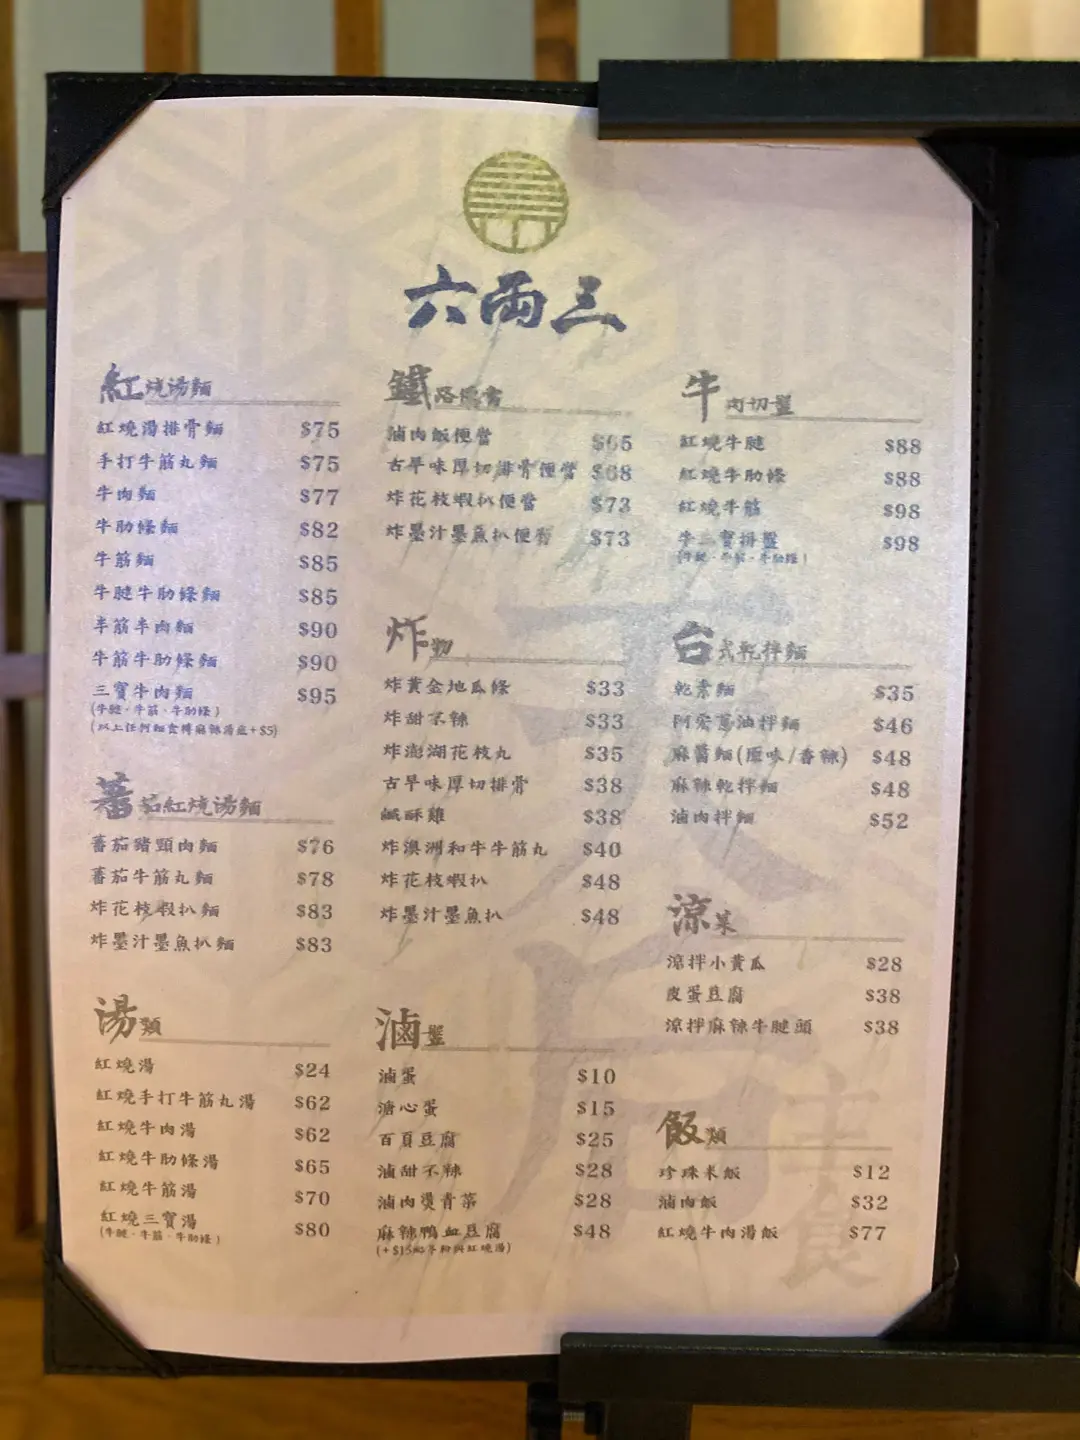 六兩三
紅燒湯麵
紅燒湯排骨麵 $75
手打牛筋丸麵 $75
牛肉麵 $77
牛肋條麵 $82
牛筋麵 $85
牛腱牛肋條麵 $85
半筋半肉麵 $90
牛筋牛肋條麵 $90
三寶牛肉麵 $95
(牛腱·牛筋·牛肋條)
(以上任何麵食轉麻辣湯底+$5)
蕃茄紅燒湯麵
蕃茄豬頸肉麵 $76
蕃茄牛筋丸麵 $78
炸花枝蝦扒麵 $83
炸墨汁墨魚扒麵 $83
湯類
紅燒湯 $24
紅燒手打牛筋丸湯 $62
紅燒牛肉湯 $62
紅燒牛肋條湯 $65
紅燒牛筋湯 $70
紅燒三寶湯 $80
(牛腱·牛筋·牛肋條)
鐵路便當
滷肉飯便當 $65
古早味厚切排骨便當 $68
炸花枝蝦扒便當 $73
炸墨汁墨魚扒便當 $73
炸物
炸黃金地瓜條 $33
炸甜不辣 $33
炸澎湖花枝丸 $35
古早味厚切排骨 $38
鹹酥雞 $38
炸澳洲和牛牛筋丸 $40
炸花枝蝦扒 $48
炸墨汁墨魚扒 $48
滷盤
滷蛋 $10
溏心蛋 $15
百頁豆腐 $25
滷甜不辣 $28
滷肉燙青菜 $28
麻辣鴨血豆腐 $48
(+$15配冬粉與紅燒湯)
牛肉切盤
紅燒牛腱 $88
紅燒牛肋條 $88
紅燒牛筋 $98
牛三寶拼盤 $98
(牛腱·牛筋·牛肋條)
台式乾拌麵
乾素麵 $35
阿宏蔥油拌麵 $46
麻醬麵(原味/香辣) $48
麻辣乾拌麵 $48
滷肉拌麵 $52
涼菜
涼拌小黃瓜 $28
皮蛋豆腐 $38
涼拌麻辣牛腱頭 $38
飯類
珍珠米飯 $12
滷肉飯 $32
紅燒牛肉湯飯 $77
主食